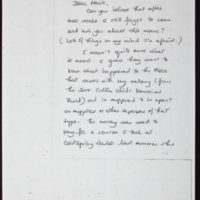 Dear Mark,
Can you believe that after
two weeks I still forget to come
and ask you about this memo?
(Lots of things on my mind I'm afraid.)
I wasn't quite sure what
it meant. I guess they want to
know what happened to the $1000
that comes with my salary (from
the Jane Coffin Childs Memorial
Fund) and is supposed to be spent
on supplies or other expenses of that
type. The money was used to
pay for a course I took at
Cold Spring Harbor last summer who